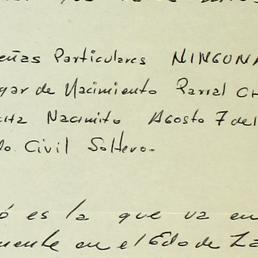 eñas Particulares NINGUNA
gar de Nacimiento Parral CH
cha Nacimito Agosto 7 del
do Civil Soltero.
ó es la que va en
mente en el Edo de Za